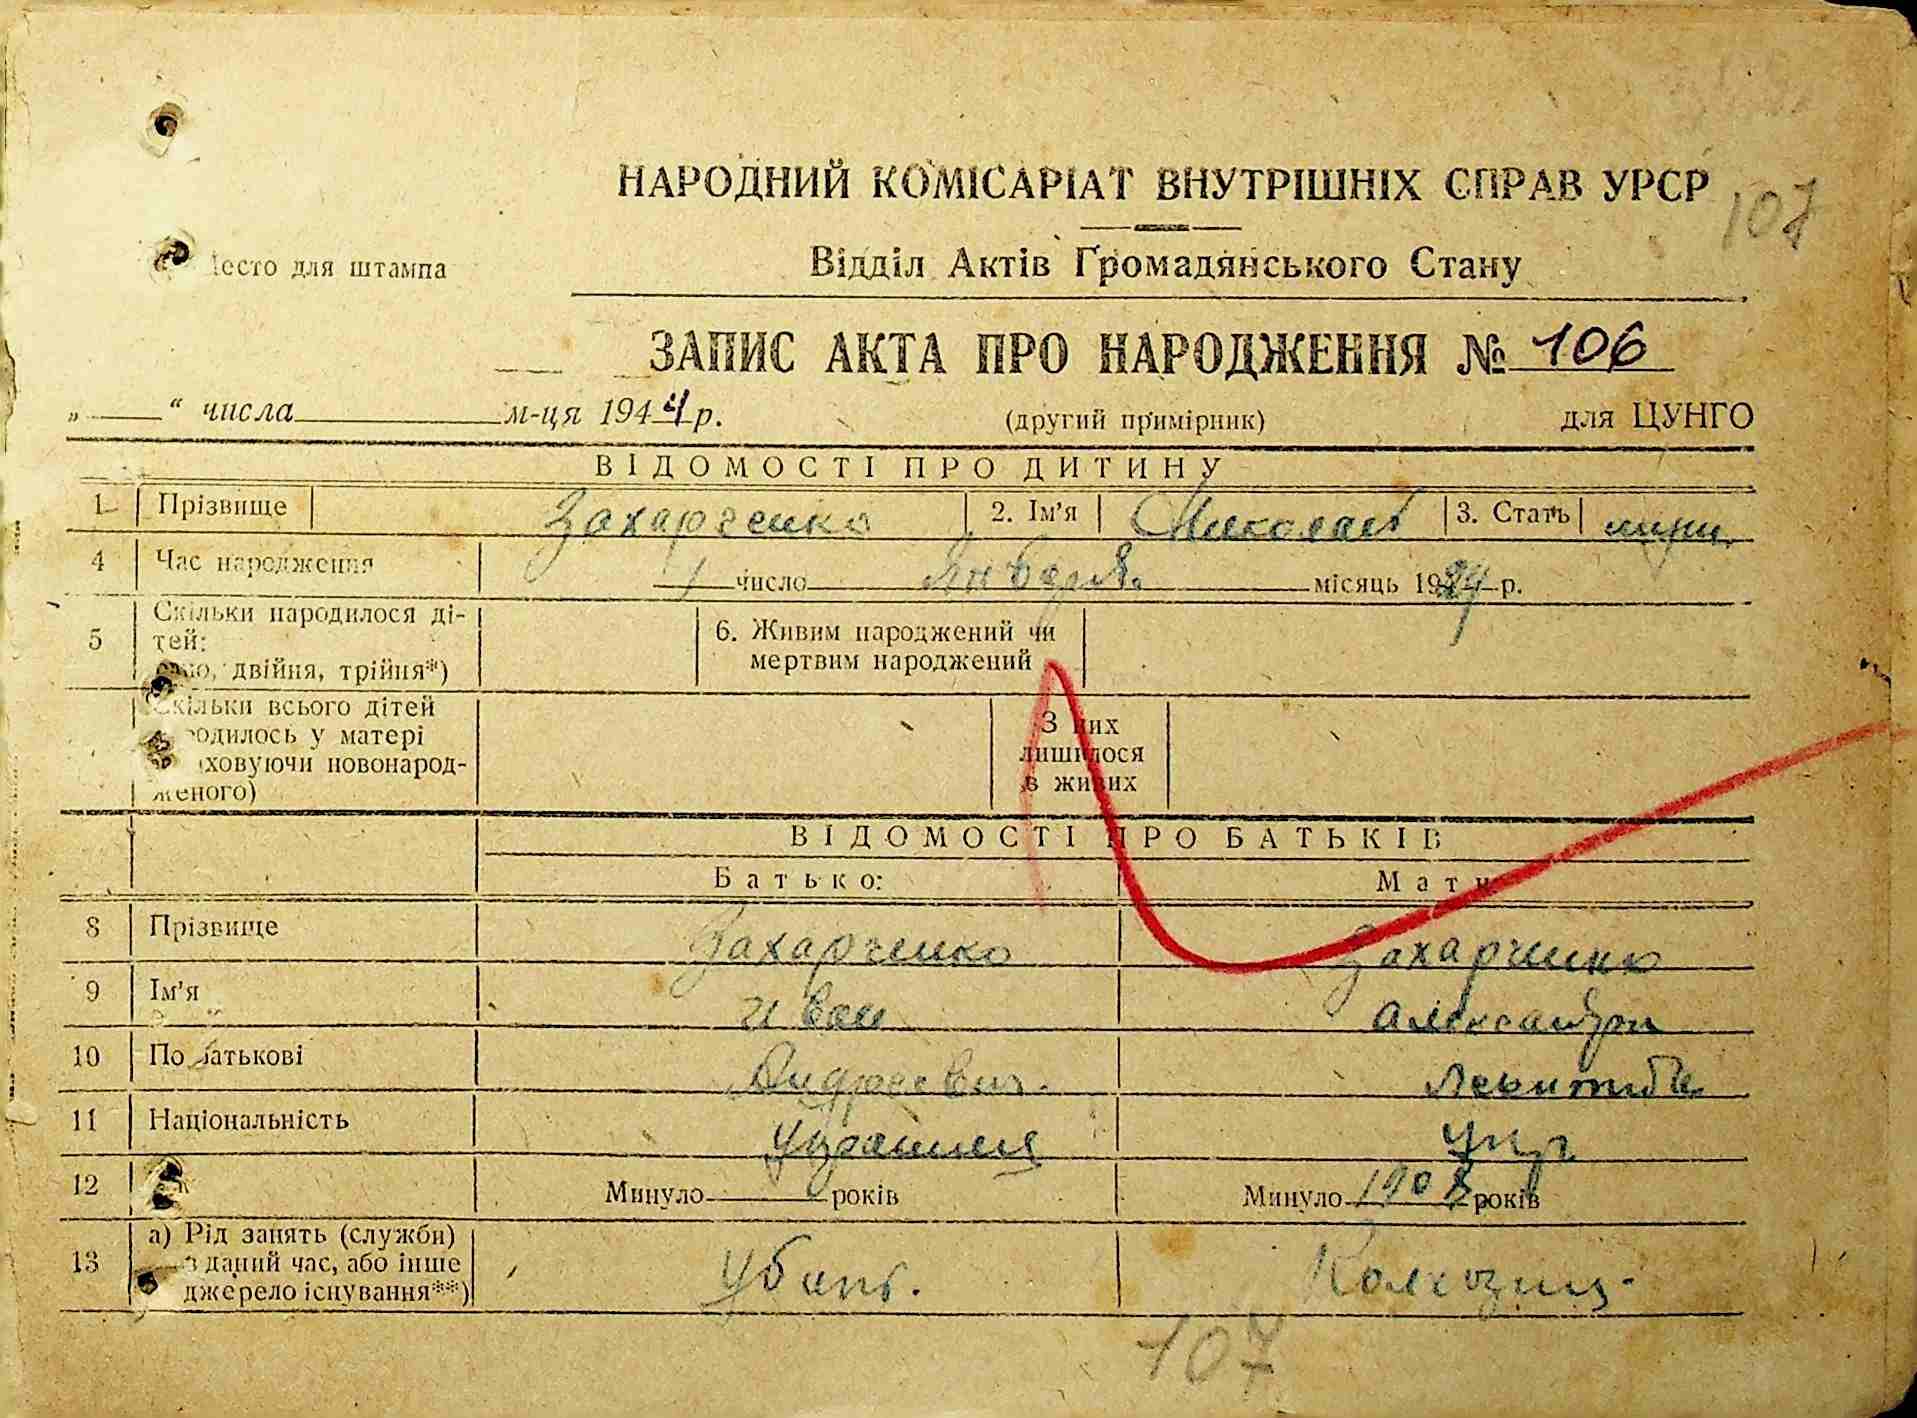 107
НАРОДНИЙ КОМІСАРІАТ ВНУТРІШНІХ СПРАВ УРСР
есто для штампа
Відділ Актів Громадянського Стану
ЗАПИС АКТА ПРО НАРОДЖЕННЯ № 106
„ “ числа м-ця 1944 р. (другий примірник) для ЦУНГО
ВІДОМОСТІ ПРО ДИТИНУ
1 Прізвище Захарченко 2. Ім'я Николай 3. Стать
4 Час народження 1 число Января місяць 19 р.
5 Скільки народилося ді-
тей:
двійня, трійня*)
6. Живим народжений чи
мертвим народжений
кільки всього дітей
родилось у матері
ховуючи новонарод-
женого)
З них
лишилося
в живих
ВІДОМОСТІ ПРО БАТЬКІВ
Батько: Мати
8 Прізвище Захарченко Захарченко
9 Ім'я Иван Александра
10 По батькові Андреевич
11 Національність Украинец Укр
12 Минуло років Минуло років
13 а) Рід занять (службн)
в даний час, або інше
джерело існування**)
Убит. Колхозниц.
107